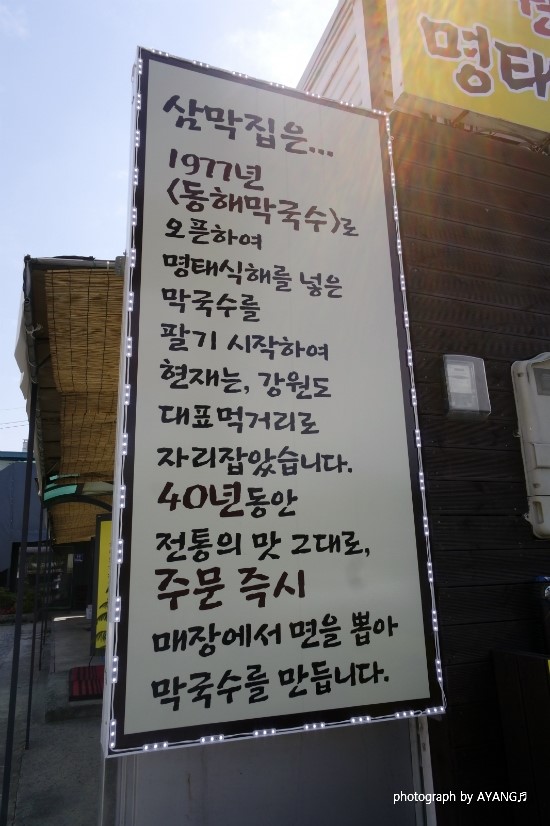 명태
삼막집은...
1977년
<동해막국수>로
오픈하여
명태식해를 넣은
막국수를
팔기 시작하여
현재는, 강원도
대표먹거리로
자리잡았습니다.
40년동안
전통의 맛 그대로,
주문 즉시
매장에서 면을 뽑아
막국수를 만듭니다.
photograph by AYANG♬